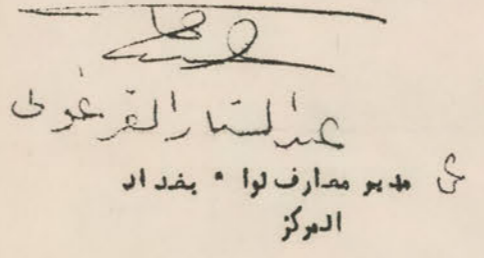 عبدالستار القرغولي
ع مدير معارف لواء بغداد
المركز